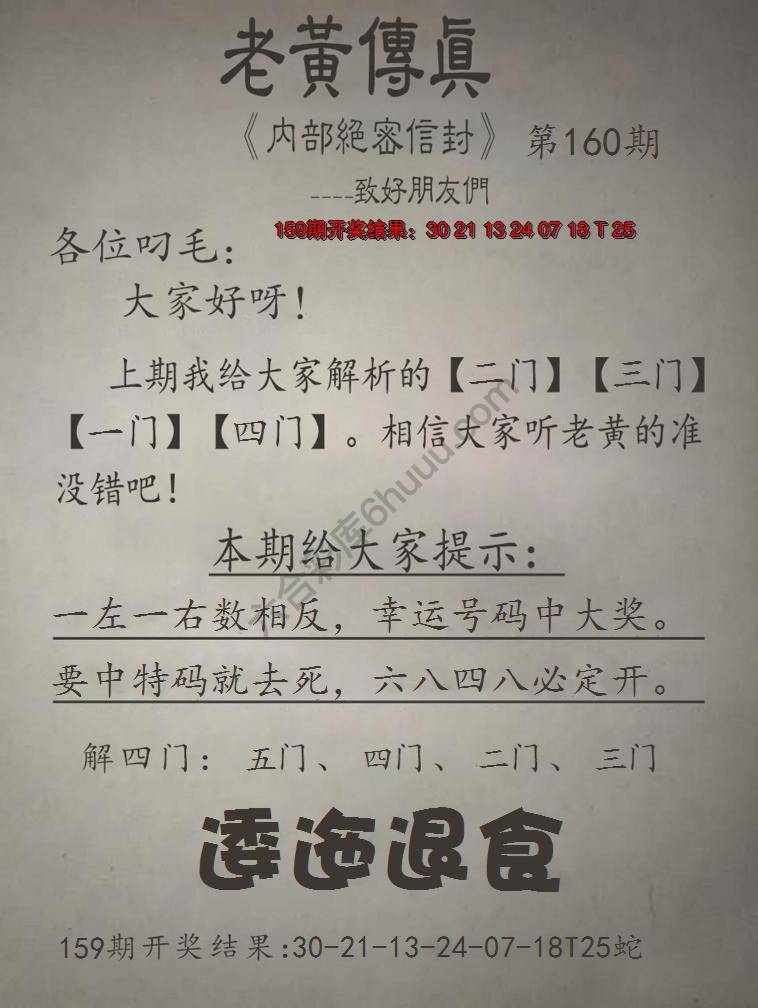 老黃傳真
《内部絕密信封》 第160期
----致好朋友們
159期开奖结果：30 21 13 24 07 18 T 25
各位叼毛：
大家好呀！
上期我给大家解析的【二门】【三门】
【一门】【四门】。相信大家听老黄的准
没错吧！
六合彩库6huuu.com
本期给大家提示：
一左一右数相反，幸运号码中大奖。
要中特码就去死，六八四八必定开。
解四门： 五门、 四门、 二门、 三门
逶迤退食
159期开奖结果:30-21-13-24-07-18T25蛇